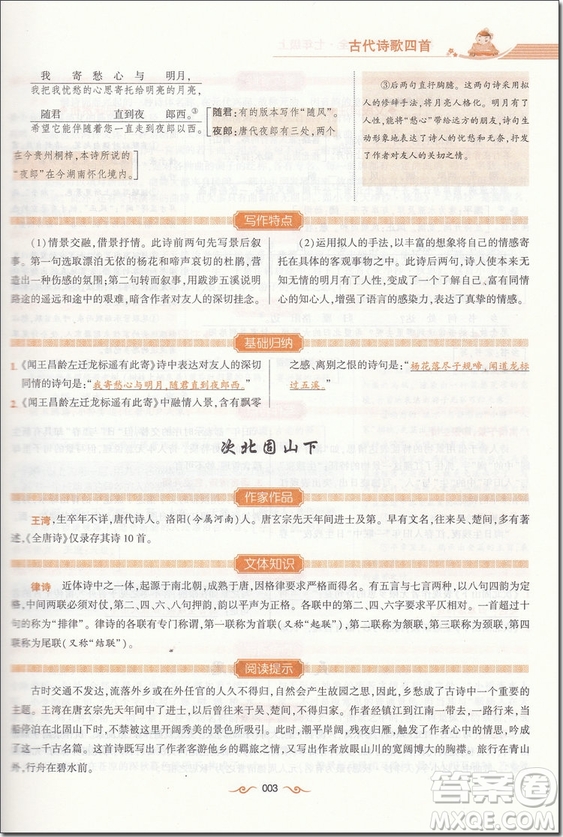 七年级上
古代诗歌四首
我 寄 愁 心 与 明月,
我把我忧愁的心思寄托给明亮的月亮,
随君 直到夜 郎西。③
希望它能够伴随着您一直到夜郎以西。
随君:有的版本写作“随风”。
夜郎:唐代夜郎有三处,两个
在今贵州桐梓,本诗所说的
“夜郎”在今湖南怀化境内。
③后两句直抒胸臆。这两句诗采用
拟人的修辞手法,将月亮人格化。明月有
了人性,能将“愁心”带给远方的朋友,诗句生
动形象地表现了诗人的忧愁和无奈,抒发
了作者对友人的关切之情。
写作特点
(1)情景交融,借景抒情。此诗前两句先写景后叙
事。第一句选取漂泊无依的杨花和啼声哀切的杜鹃,营
造出一种伤感的氛围;第二句转而叙事,以跋涉五溪说明
路途的遥远和途中的艰难,暗含作者对友人的深切挂念。
(2)运用拟人的手法,以丰富的想象将自己的情感寄
托在具体的客观事物之中。诗人使本来无知无感
的明月有了人性,使它变成了一个了解自己、富于同情
心的知心人,增强了语言的感染力,表现了真挚的友情。
基础归纳
1.《闻王昌龄左迁龙标遥有此寄》诗中表达对友人的深切
同情的诗句是:“我寄愁心与明月,随君直到夜郎西。”
2.《闻王昌龄左迁龙标遥有此寄》中融情入景,含有飘零
之感、离别之恨的诗句是:“杨花落尽子规啼,闻道龙标
过五溪。”
次北固山下
作家作品
王湾,生卒年不详,唐代诗人。洛阳(今属河南)人。唐玄宗先天年间进士及第。早有文名,往来吴、楚间,多有著
述,《全唐诗》仅录存其诗10首。
文体知识
律诗 近体诗中之一体,起源于南北朝,成熟于唐,因格律要求严格而得名。有五言与七言两种,以八句四韵为定
格,中间两联必须对仗,二、四、六、八句押韵,首句可押可不押,通常押平声。各联中的第二、四、六字要求平仄相对。一首超过十
句的称为“排律”。律诗的各联有专门称谓,第一联称为首联(又称“起联”),第二联称为颔联,第三联称为颈联,第四
联称为尾联(又称“结联”)。
阅读提示
古时交通不发达,流落外乡或在外任官的人久不得归,自然会兴起故园之思,因此,乡愁成了古诗中一个重要的
主题。王湾在唐玄宗先天年间中进士后,来往于吴、楚间,不得归家。作者经镇江到江南一带,当船
停泊在北固山下时,他看到潮平岸阔、残夜归雁,触发了心中的情思,吟
成了一千古名篇。这首诗既写出了作者客游他乡的羁旅之情,又写出了作者放眼山川的宽阔博大的胸襟。旅行在青山
外,行舟在碧水前。
003
答案圈
MXQE.COM